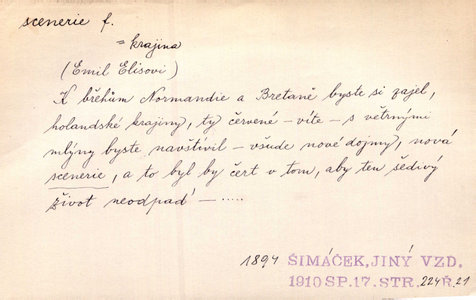 scenerie f.
= krajina
(Emil Elisovi)
K břehům Normandie a Bretaně byste si zajel,
holandské krajiny, ty červené – víte – s větrnými
mlýny byste navštívil – všude nové dojmy, nová
scenerie, a to byl by čert v tom, aby ten šedivý
život neodpad' – .....
1894 ŠIMÁČEK, JINÝ VZD.
1910 SP. 17. STR. 224 Ř. 21